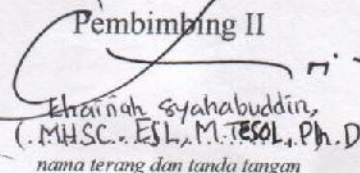 Pembimbing II
Khairiah Syahabuddin,
(MHSC. ESL, M. TESOL, Ph. D
nama terang dan tanda tangan